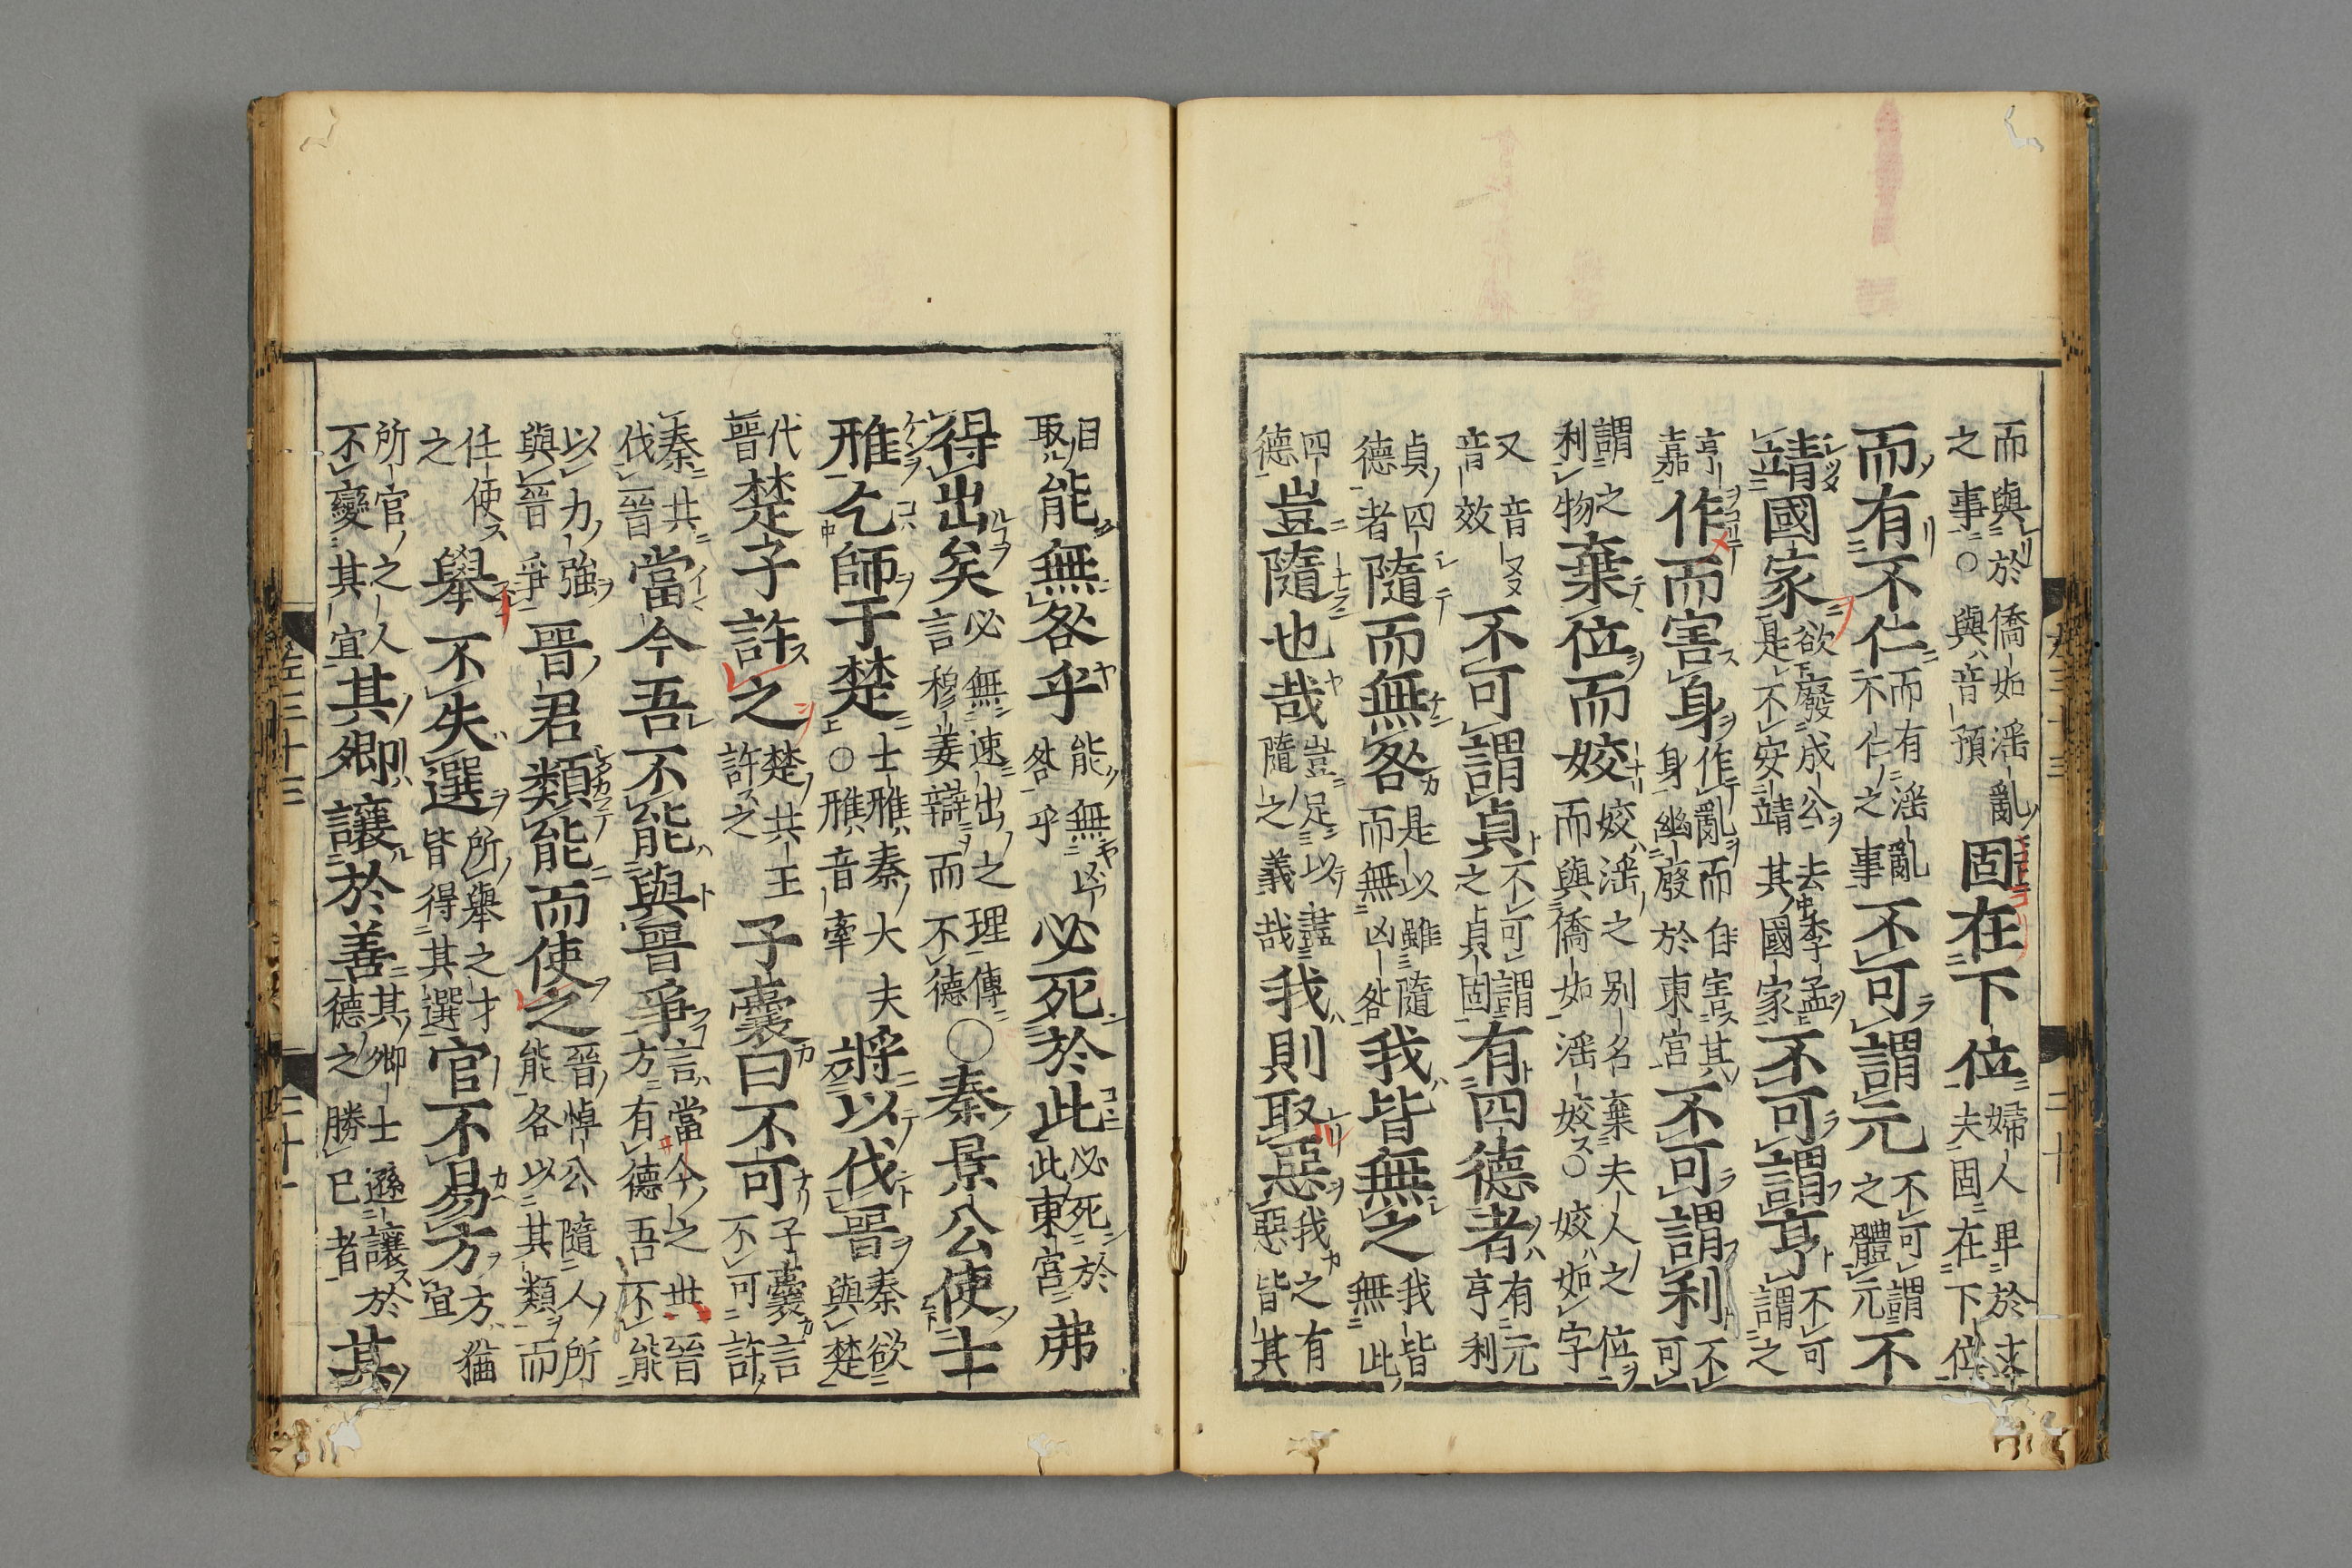 而與於僑如淫亂之事○與音預固在下位婦人卑於丈夫固在下位
而有不仁而有淫亂不仁之事不可謂元不可謂之體元不
靖國家欲廢成公去季孟是不安靖其國家不可謂亨不可謂之
亨嘉作而害身作亂而自害其身幽廢於東宮不可謂利不可
謂之利物棄位而姣姣淫之別名棄夫人之位而與僑如淫姣○姣如字
又音又音效不可謂貞不可謂之貞固有四德者有元亨利
貞四德者隨而無咎是以雖隨而無凶咎我皆無之我皆無此
四德豈隨也哉豈足以盡隨之義哉我則取惡我之有惡皆其
自取能無咎乎能無凶咎乎必死於此必死於此東宮弗
得出矣必無速出之理傳言穆姜辯而不德○秦景公使士
雃乞師于楚士雃秦大夫○雃音牽將以伐晉秦欲與楚
代晉楚子許之楚共王許之子囊曰不可子囊言不可許
秦共伐晉當今吾不能與晉爭言當今之世晉方有德吾不能
以力強與晉爭晉君類能而使之晉悼公隨人所能各以其類而
任使之舉不失選所舉之才皆得其選官不易方方猶宜
所官之人不變其宜其卿讓於善其卿士遜讓於德之勝己者其
左三十三 二十一